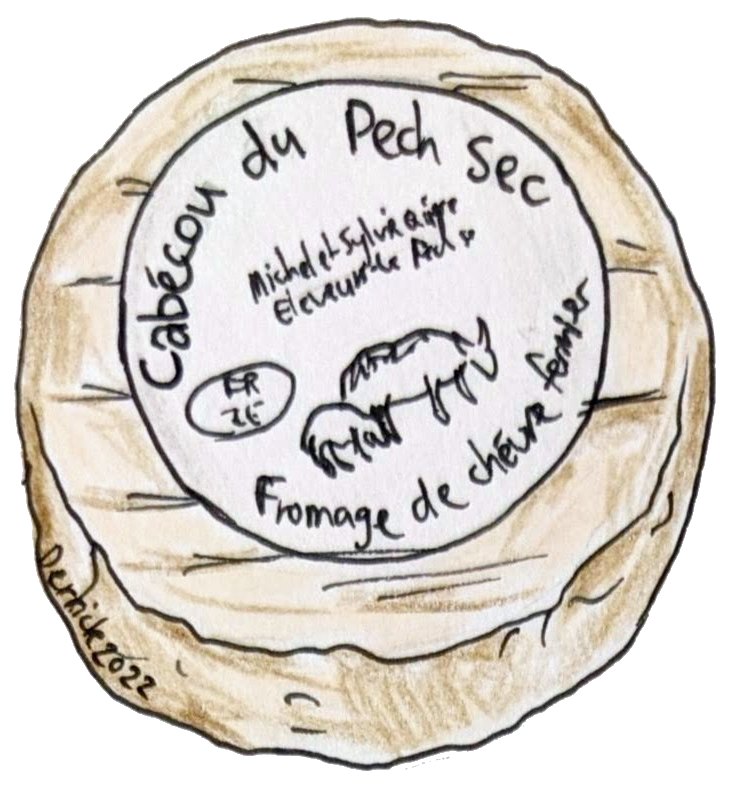 Cabécou du Pech Sec
Michel et Sylvie
Eleveurs
FR
Fromage de chèvre fermier
Dernick2022